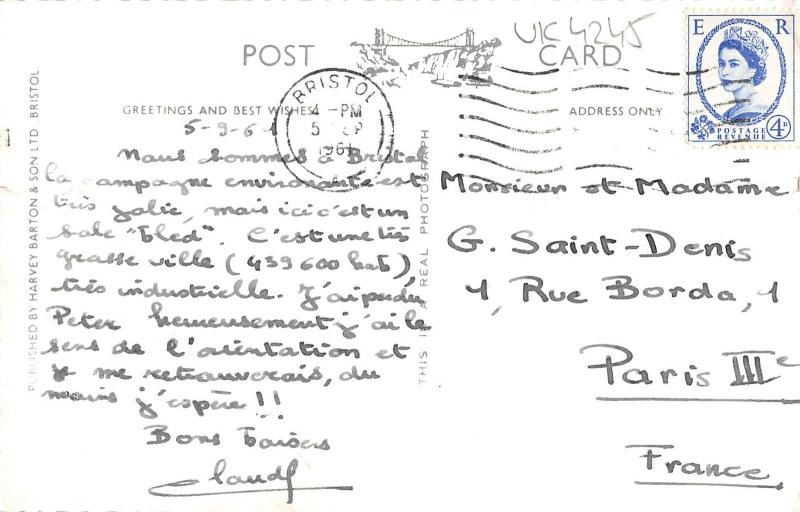 UK 4245
POST CARD
E R
POSTAGE
REVENUE
4D
BRISTOL
4-PM
5 SEP
1961
GREETINGS AND BEST WISHES
ADDRESS ONLY
PUBLISHED BY HARVEY BARTON & SON LTD. BRISTOL
THIS IS A REAL PHOTOGRAPH
5-9-61
Nous sommes à Bristol
la campagne environnante est
très jolie, mais ici c'est un
sale "bled". C'est une très
grosse ville (439 600 hab),
très industrielle. J'ai perdu
Peter heureusement j'ai le
sens de l'orientation et
je me retrouverais, du
moins j'espère !!
Bons baisers
Monsieur et Madame
G. Saint-Denis
1, Rue Borda, 1
Paris IIIe
France